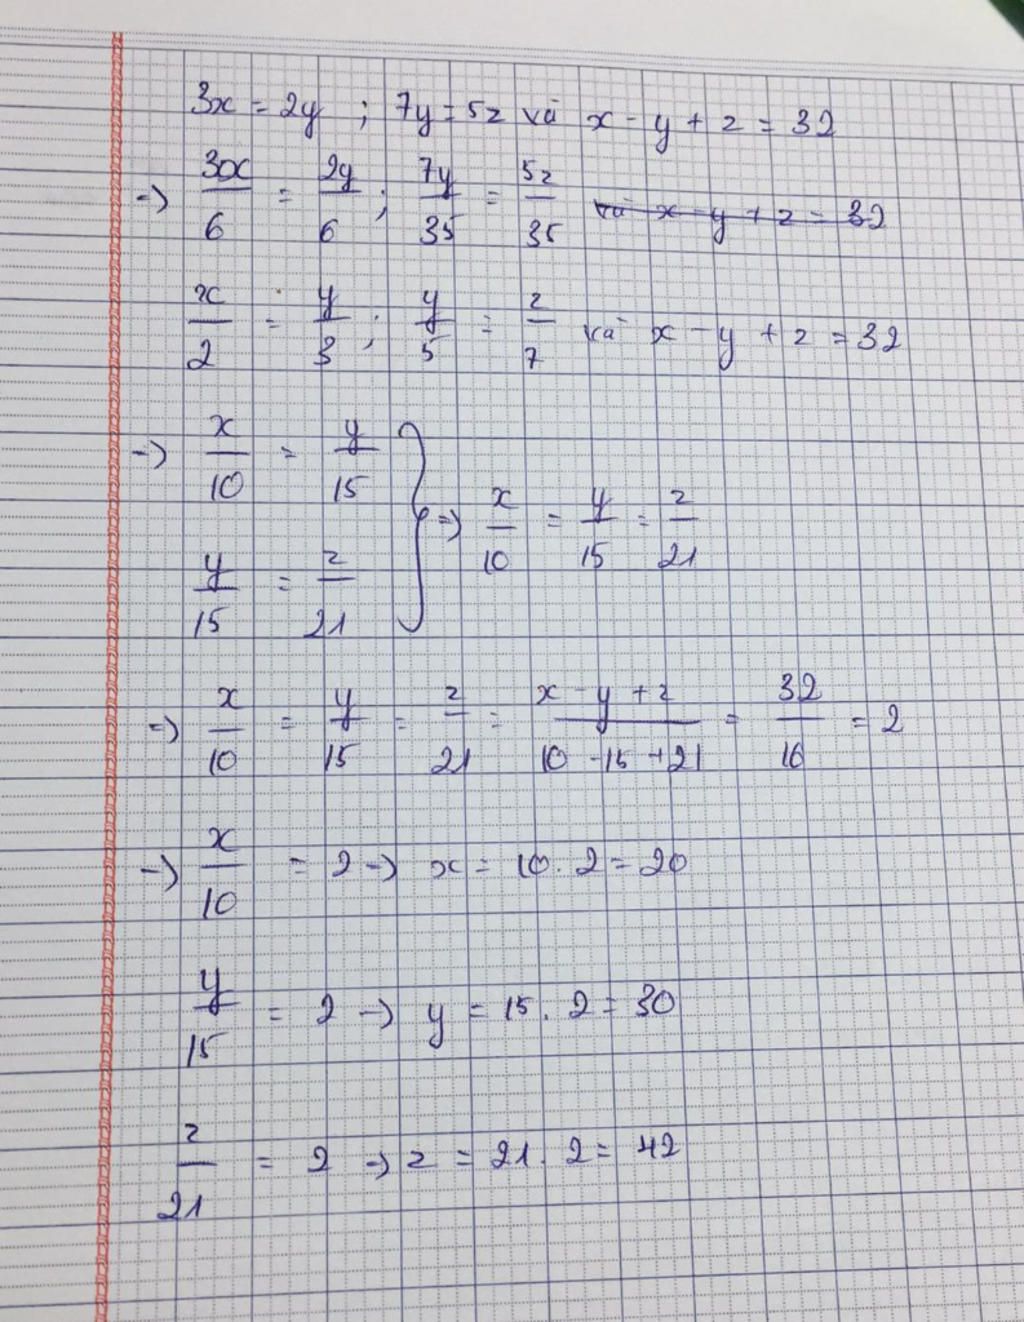 3x = 2y ; 7y = 5z và x - y + z = 32
=> 3x/6 = 2y/6 ; 7y/35 = 5z/35 và x - y + z = 32
x/2 = y/3 ; y/5 = z/7 và x - y + z = 32
=> x/10 = y/15
y/15 = z/21 } => x/10 = y/15 = z/21
=> x/10 = y/15 = z/21 = x - y + z/10 - 15 + 21 = 32/16 = 2
=> x/10 = 2 => x = 10 . 2 = 20
y/15 = 2 => y = 15 . 2 = 30
z/21 = 2 => z = 21 . 2 = 42